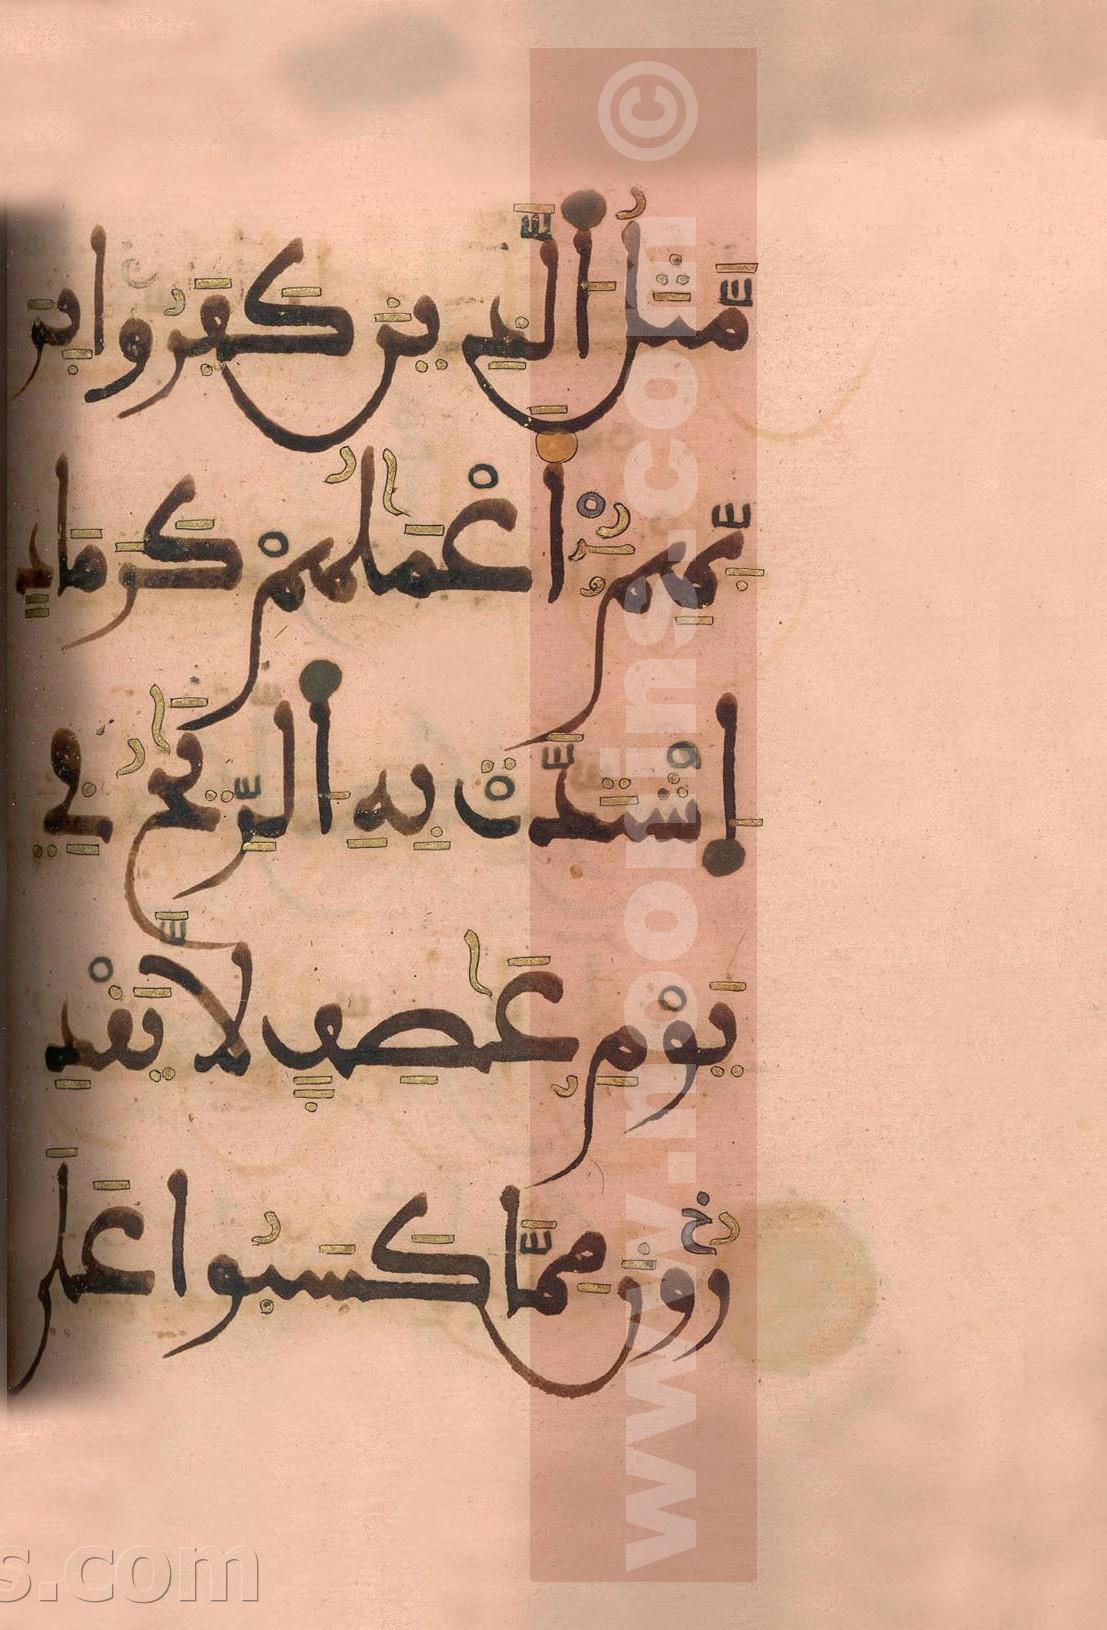 مَّثَلُ الَّذِينَ كَفَرُوا بِرَ
بِّهِمُ أَعْمَٰلُهُمْ كَرَمَادٍ
اِشْتَدَّتْ بِهِ الرِّيَٰحُ فِي
يَوْمٍ عَٰصِفٍ لَّا يَقْدِ
رُونَ مِمَّا كَسَبُوا عَلَى
s.com